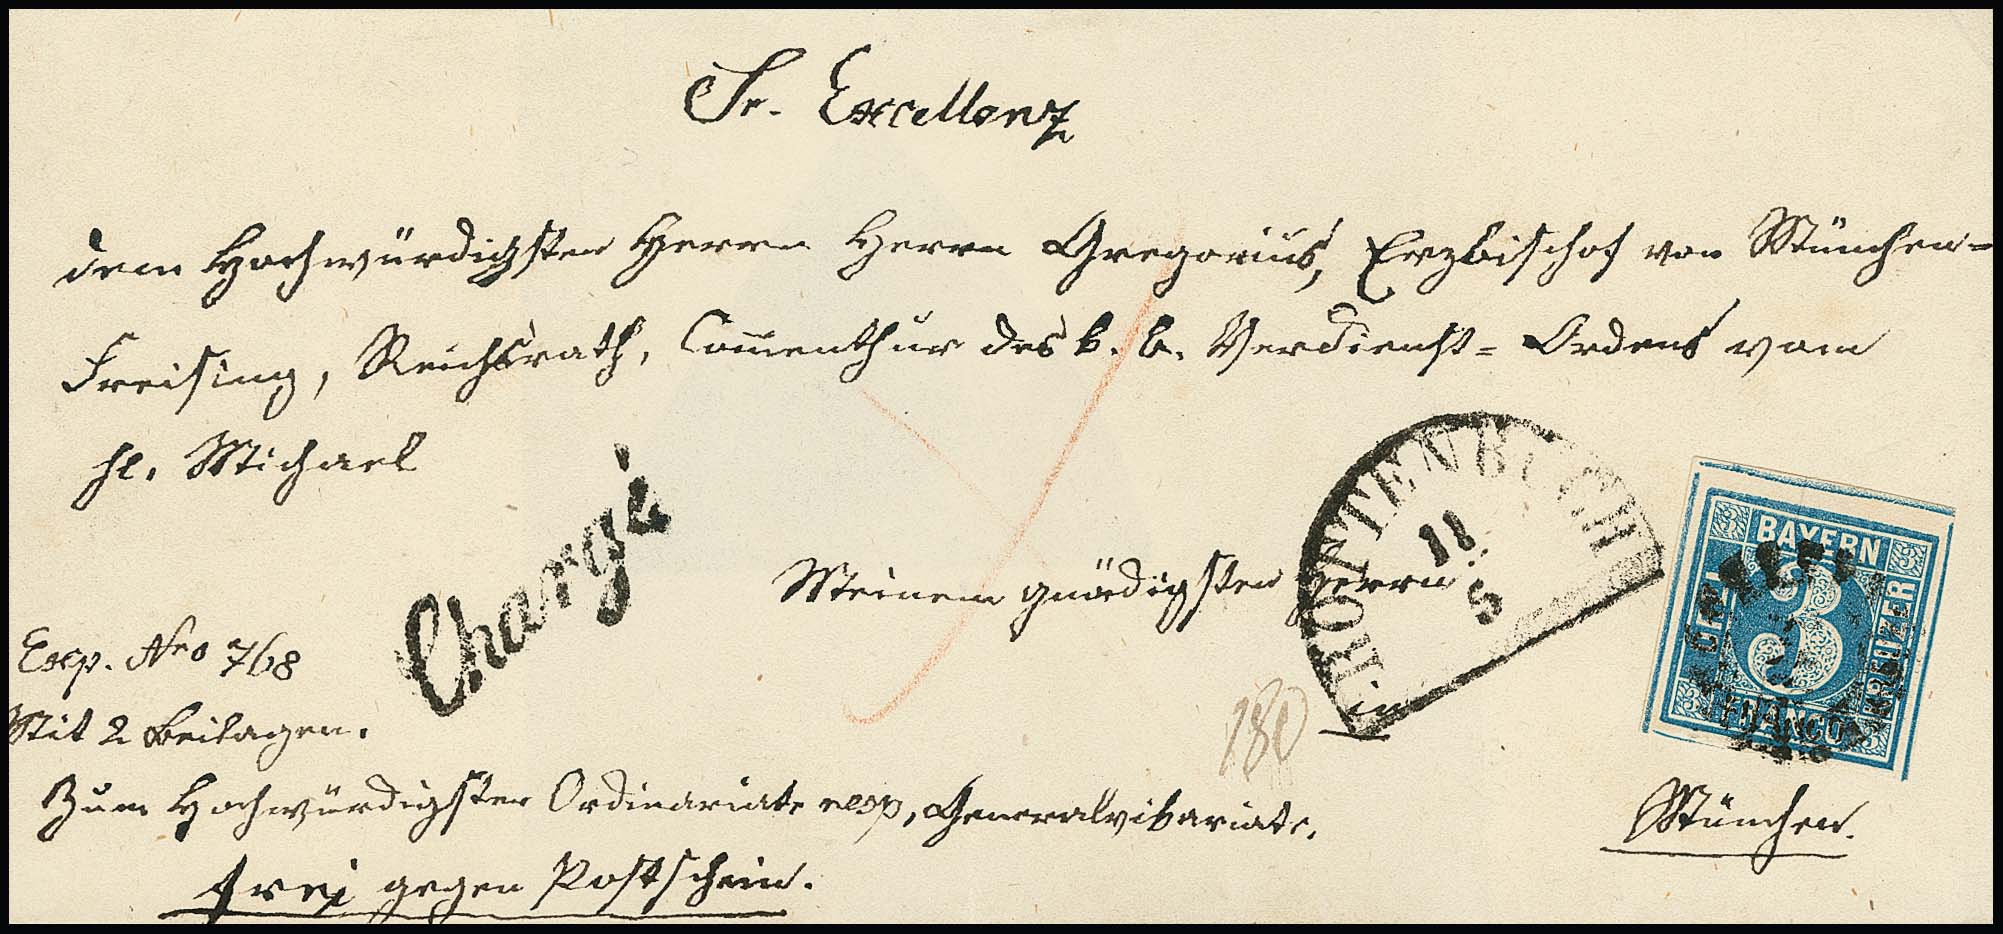 Sr. Excellenz
dem Hochwürdigsten Herrn Herrn Gregorius, Erzbischof von München-
Freising, Reichsrath, Com̄enthur des k. b. Verdienst-Ordens vom
hl. Michael
Chargé
ROTTENBUCH
11
5
Meinem gnädigsten Herrn.
BAYERN
DREI
3
KREUZER
FRANCO
Exp. Nro 768
Mit 2 Beilagen.
in
180
Zum Hochwürdigsten Ordinariate resp, Generalvikariate.
München.
frei gegen Postschein.